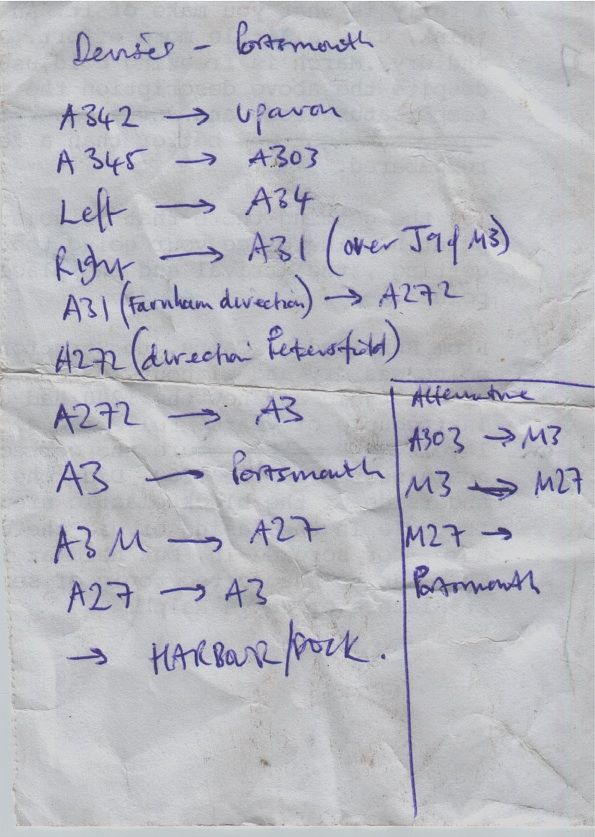 Devizes - Portsmouth
A342 → Upavon
A345 → A303
Left → A34
Right → A31 (over J9 of M3)
A31 (Farnham direction) → A272
A272 (direction Petersfield)
A272 → A3
A3 → Portsmouth
A3M → A27
A27 → A3
→ HARBOUR/DOCK.
Alternative
A303 → M3
M3 → M27
M27 →
Portsmouth